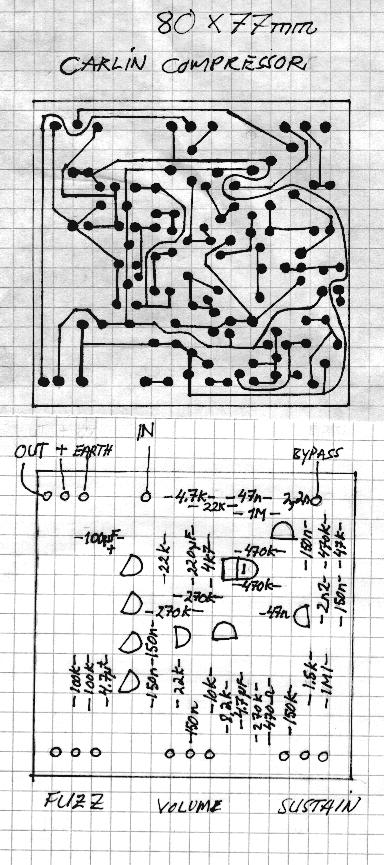 80 X 77mm
CARLIN COMPRESSOR
IN
OUT + EARTH
BYPASS
-4.7K- -47n- 2,2n
-22K- -1M-
-100µF-
+
-22K-
-220µF-
4k7
-470K-
-470K-
-150n-
-470K-
-47K-
-270K-
-270K-
-47n-
-2n2-
-150n-
-100K-
-100K-
-4.7µF
-150n-
-150n-
-22K-
-150n
-10K-
-8,2K-
-4.7µF-
-270K-
-470Ω-
-150K-
-1.5K-
-1M-
FUZZ VOLUME SUSTAIN